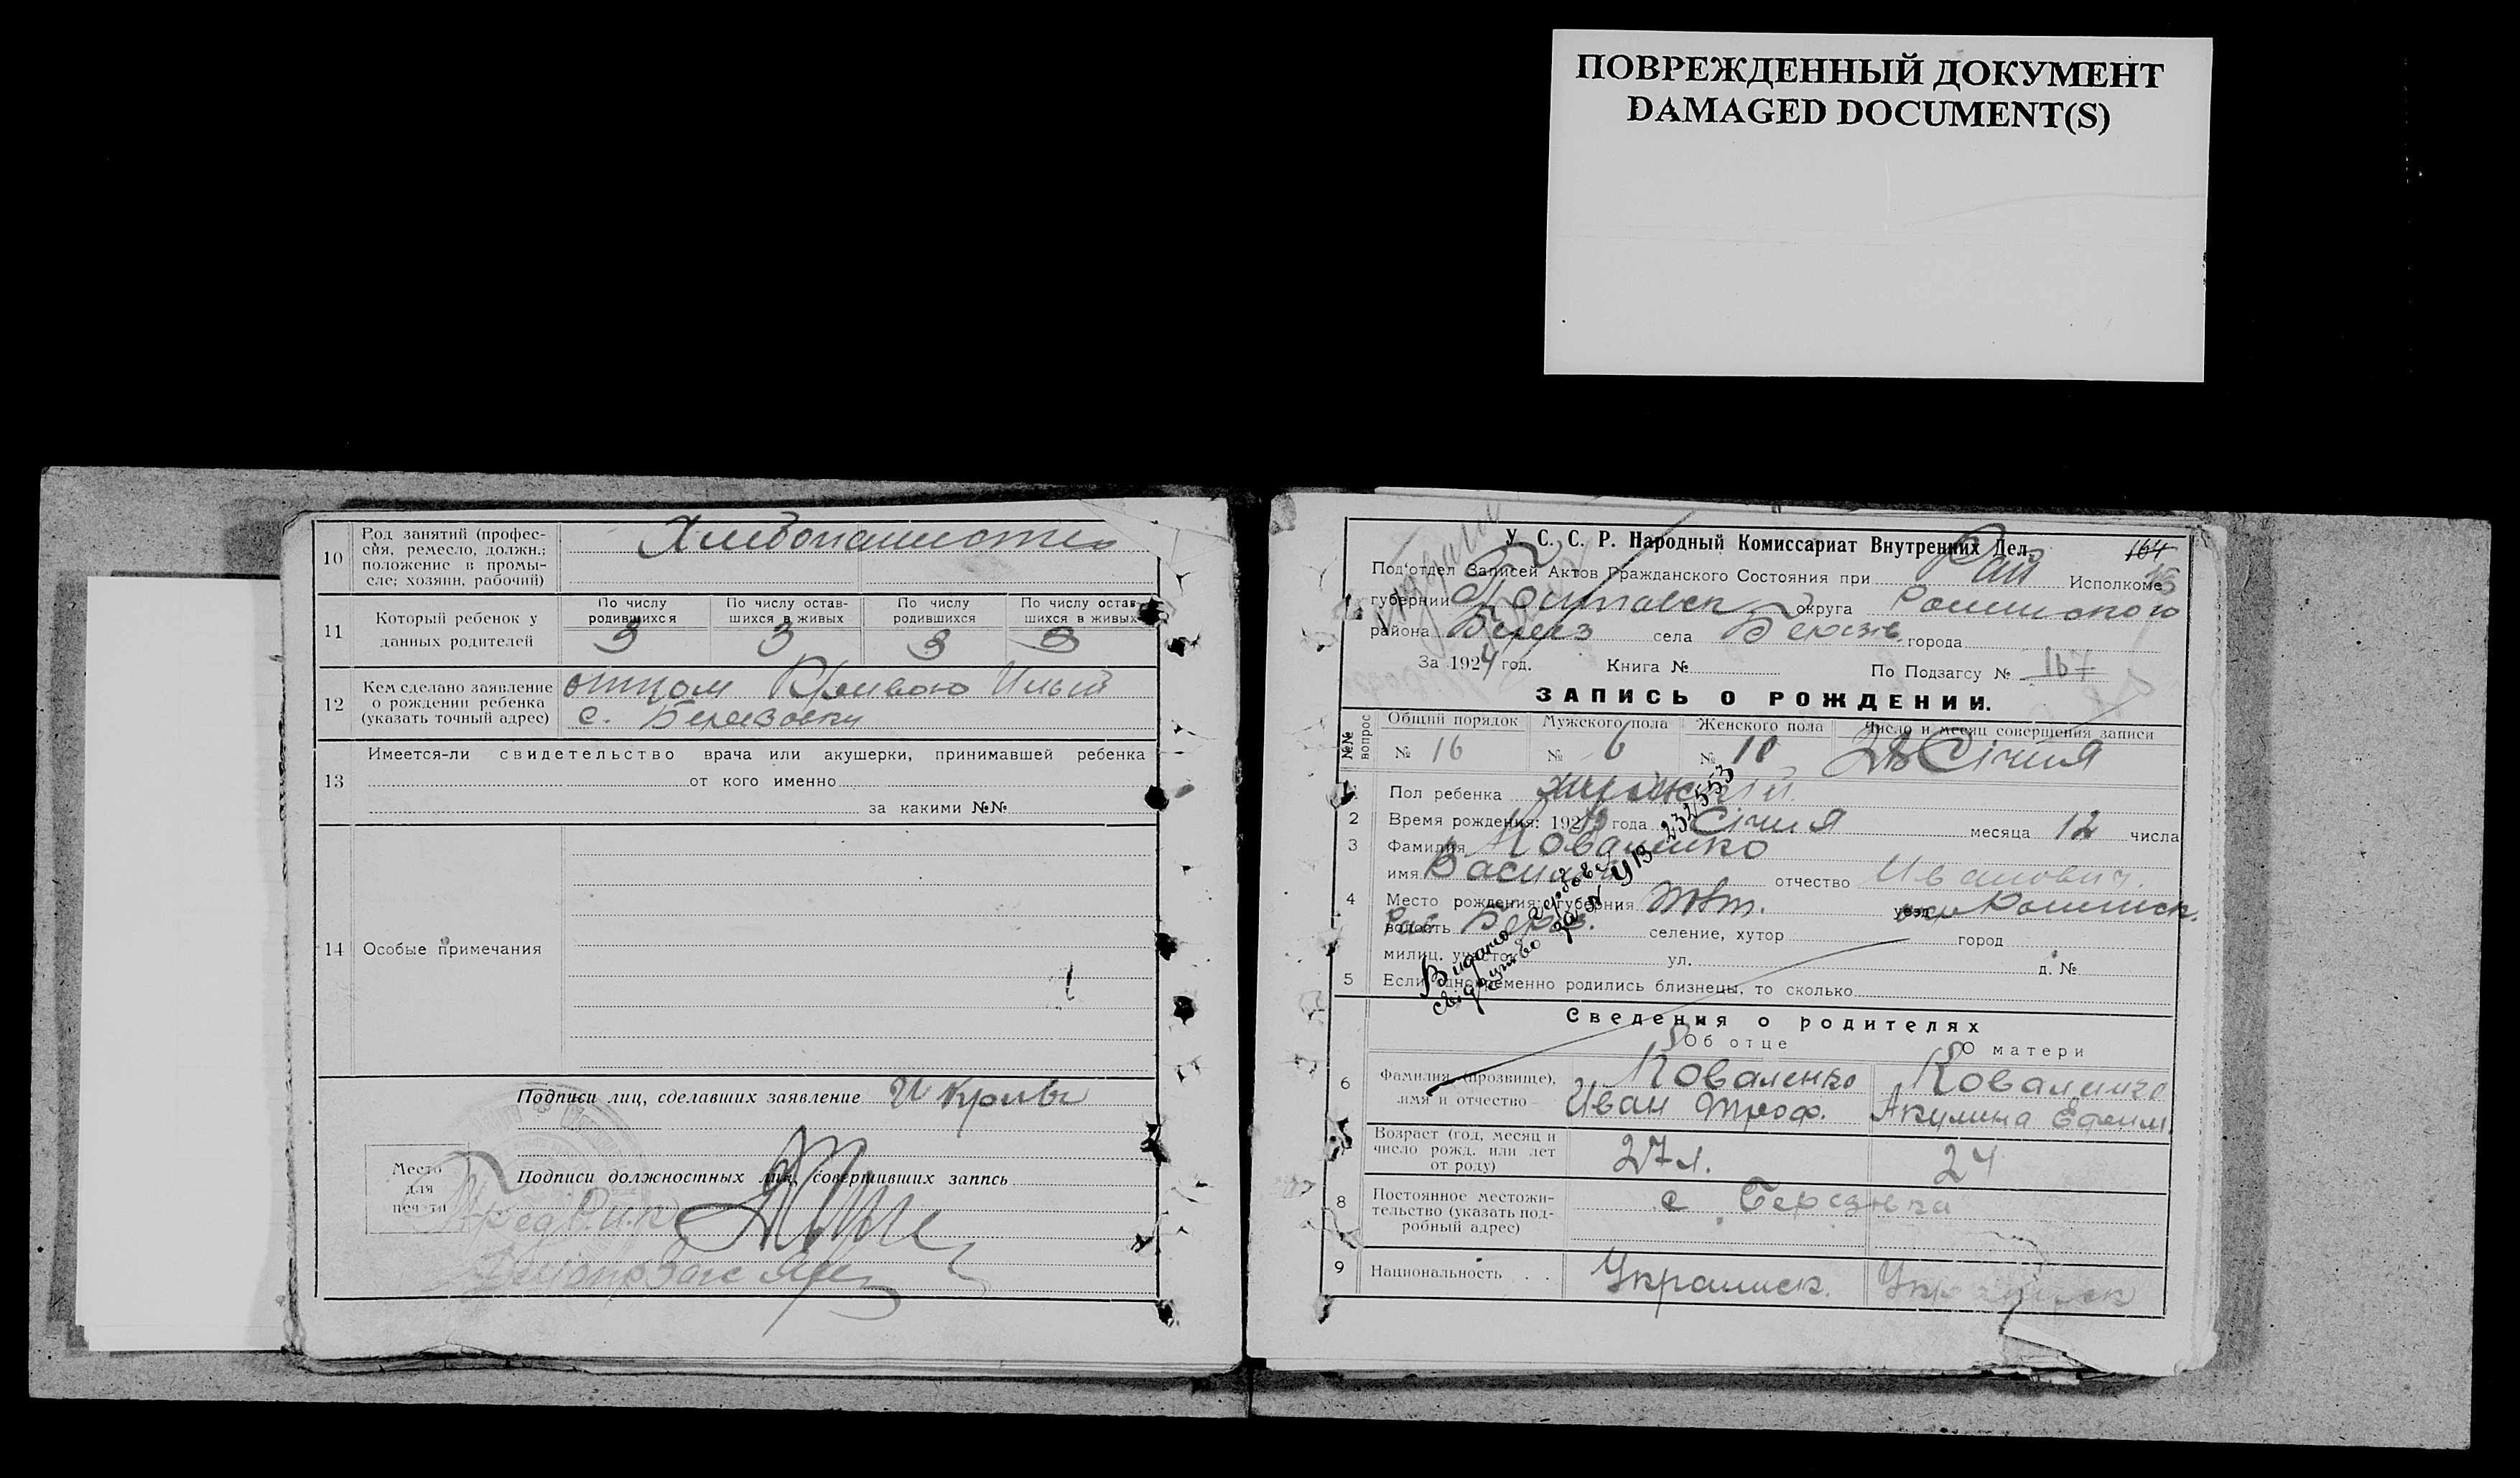 ПОВРЕЖДЕННЫЙ ДОКУМЕНТ
DAMAGED DOCUMENT(S)
10 Род занятий (профессия, ремесло, должн.; положение в промысле; хозяин, рабочий)
11 Который ребенок у данных родителей
По числу родившихся 3
По числу оставшихся в живых 3
По числу родившихся 3
По числу оставшихся в живых 3
12 Кем сделано заявление о рождении ребенка (указать точный адрес)
отцом
с. Березовки
13 Имеется-ли свидетельство врача или акушерки, принимавшей ребенка
от кого именно
за какими №№
14 Особые примечания
Подписи лиц, сделавших заявление
Место для печати
Подписи должностных лиц, совершивших запись
164
У. С. С. Р. Народный Комиссариат Внутренних Дел.
Под'отдел Записей Актов Гражданского Состояния при Рай Исполкоме
губернии округа
района Берез села города
За 1924 год. Книга № По Подзагсу № 167
ЗАПИСЬ О РОЖДЕНИИ.
№№ вопрос
Общий порядок Мужского пола Женского пола Число и месяц совершения записи
№ 16 № 6 № 10 Січня
1 Пол ребенка
2 Время рождения: 192 года Січня месяца 12 числа
3 Фамилия Коваленко
имя отчество Иванович
4 Место рождения: губерния уезд
волость селение, хутор город
милиц. участок ул. д. №
5 Если одновременно родились близнецы, то сколько
Видано
свідоцтво УВ 232553
Сведения о родителях
Об отце О матери
6 Фамилия (прозвище), имя и отчество
Коваленко Коваленко
Иван Троф. Акулина Ефим.
7 Возраст (год, месяц и число рожд. или лет от роду)
27 л. 24
8 Постоянное местожительство (указать подробный адрес)
с
9 Национальность . .
Украинск. Украинск